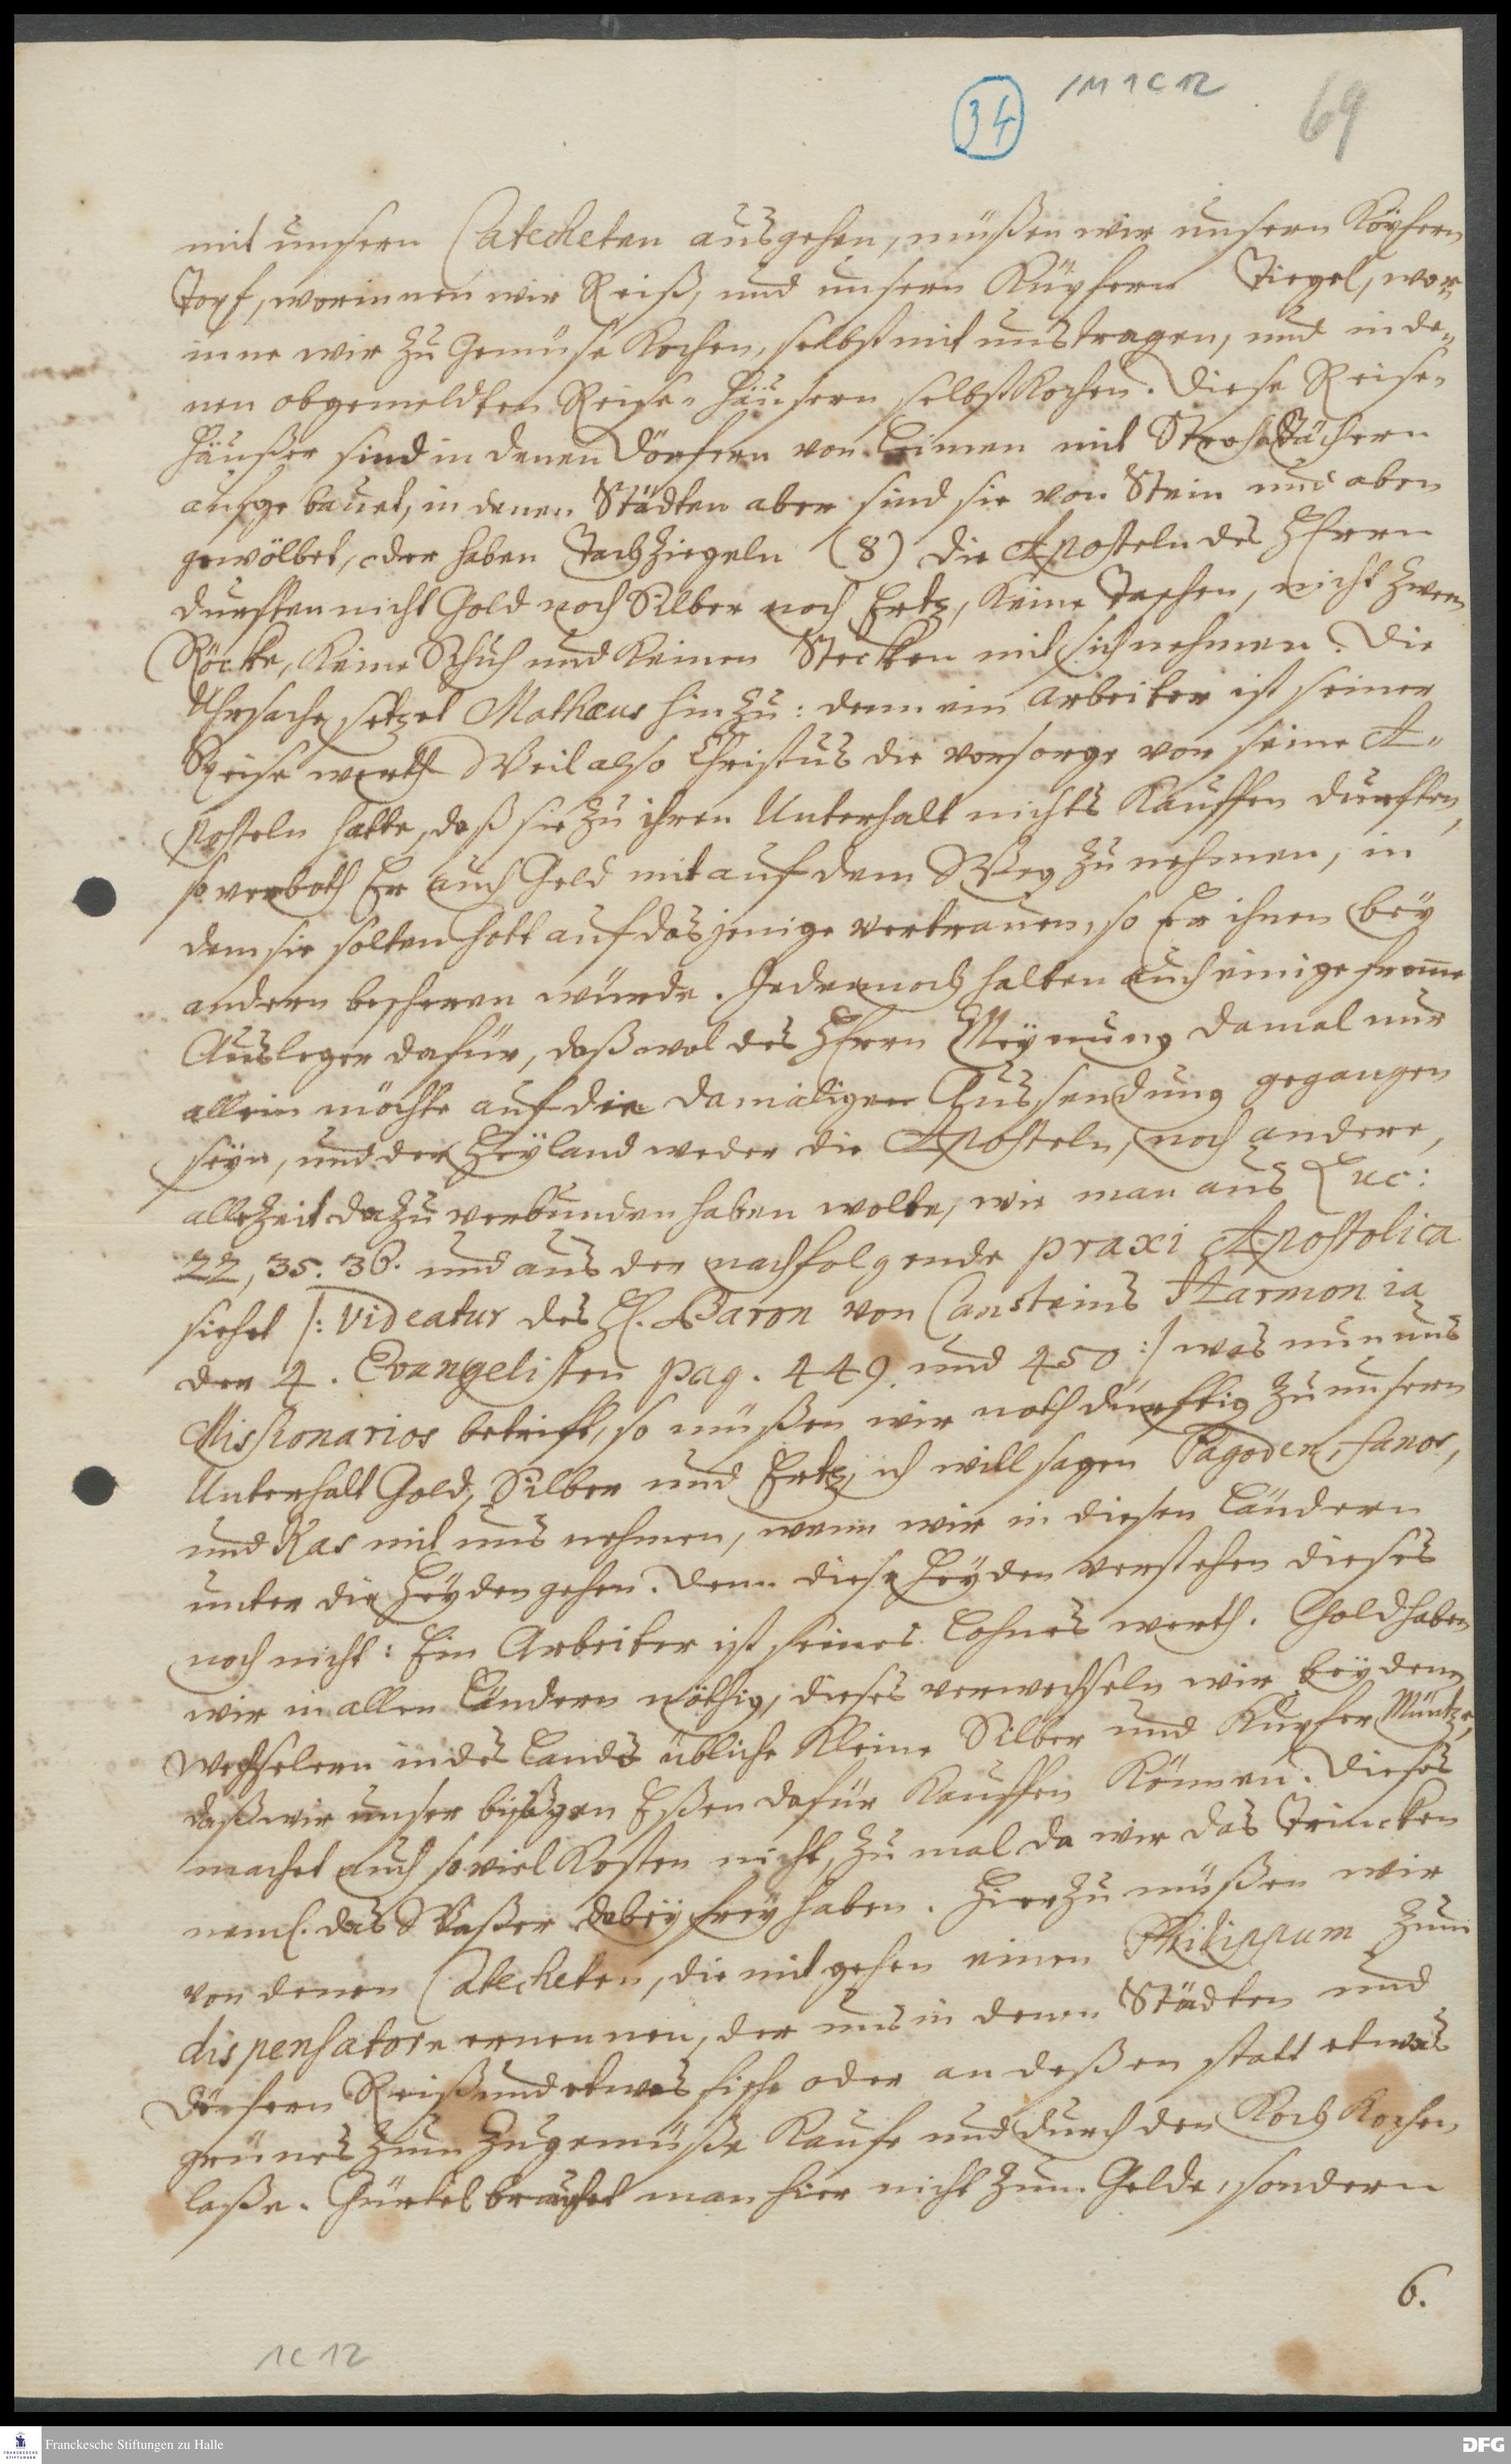 34
1M 1C 12
69
mit unsern Catecheten ausgehen, müßen wir unsern Kupfern
Topf, worinnen wir Reiß, und unsern Küpfern Tiegel, wor-
inne wir Zu Gemüse Kochen, selbst mit uns tragen, und in de-
nen obgemeldten Reise-Häusern selbst Kochen. Diese Reise-
Häußer sind in denen Dörfern von Leimen mit Stroh Dächern
aufgebauet, in denen Städten aber sind sie von Stein und oben
gewölbet, oder haben Tachziegeln (8) Die Aposteln des HErrn
durfften nicht Gold noch Silber noch Ertz, Keine Taschen, nicht zween
Röcke, Keine Schuh und Keinen Stecken mit sich nehmen. Die
Uhrsache setzet Mathæus hinzu: denn ein Arbeiter ist seiner
Speise werth Weil also Christus die Vorsorge vor seine A-
posteln hatte, daß sie zu ihren Unterhalt nichts Kauffen durfften,
so verboth Er auch Geld mit auf dem Weg zu nehmen, in
dem sie solten Gott auf dasjenige vertrauen, so Er ihnen bey
andern bescheren würde. Jedennoch halten auch einige from̅e
Ausleger dafür, daß wol des HErrn Meynung damal nur
allein möchte auf die damaligen Aussendung gegangen
seyn, und der Heyland weder die Aposteln, noch andere,
allezeit dazu verbunden haben wolte, wie man aus Luc:
22, 35. 36. und aus der nachfolgende praxi Apostolica
siehet /: Videatur des H. Baron von Cansteins Harmonia
der 4. Evangelisten pag. 449. und 450 :/ was nun uns
Missionarios betrifft, so müßen wir nothdürfftig zu unsern
Unterhalt Gold, Silber und Ertz, ich will sagen Pagoden, fanos,
und Kas mit uns nehmen, wenn wir in diesen Ländern
unter die Heyden gehen. Denn diese Heyden verstehen dieses
noch nicht: Ein Arbeiter ist seines Lohnes werth. Gold haben
wir in allen Ländern nöthig, dieses verwechseln wir bey denen
Wechselern in des Lands übliche Kleine Silber und Kupfer Müntze,
daß wir unser bißgen Eßen dafür Kauffen Können. Dieses
machet auch so viel Kosten nicht, zumal da wir das Trincken
neml. das Waßer dabey frey haben. Hierzu müßen wir
von denen Catecheten, die mit gehen einen Philippum zum
dispensatore ernennen, der uns in denen Städten und
Dörfern Reiß und etwas fische oder an deßen statt etwas
grünes zum Zugemüße Kaufe und durch den Koch Kochen
laße. Gürtel brauchet man hier nicht zum Gelde, sondern
6.
1C 12
Franckesche Stiftungen zu Halle
DFG